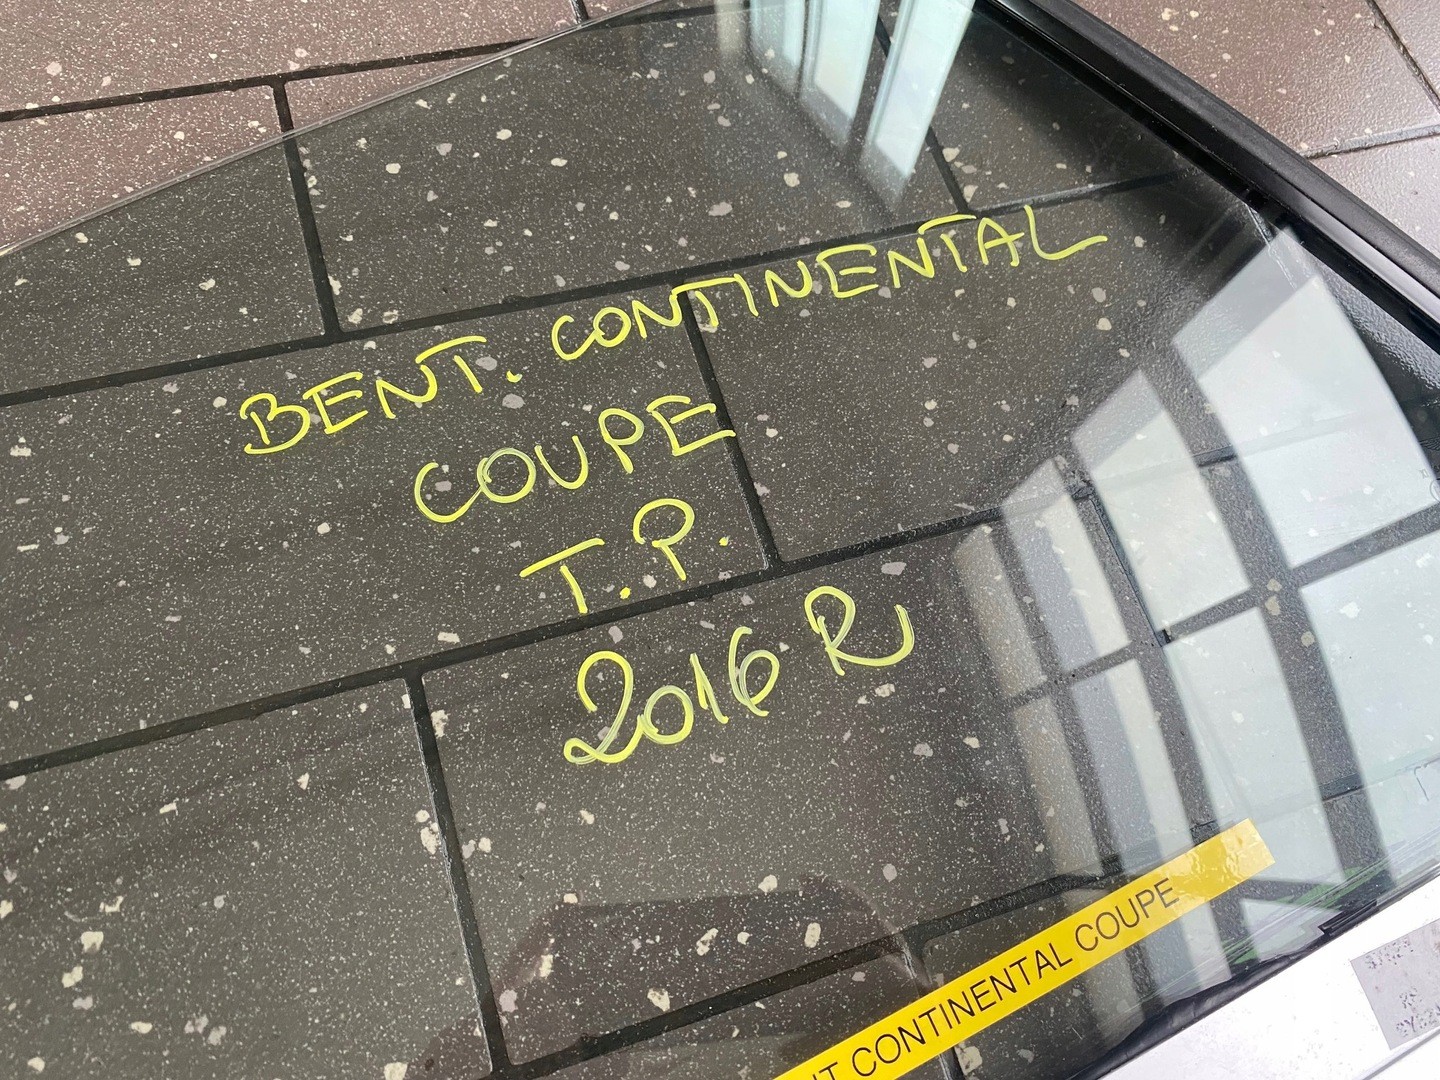 BENT. CONTINENTAL
COUPE
T.P.
2016 R
CONTINENTAL COUPE